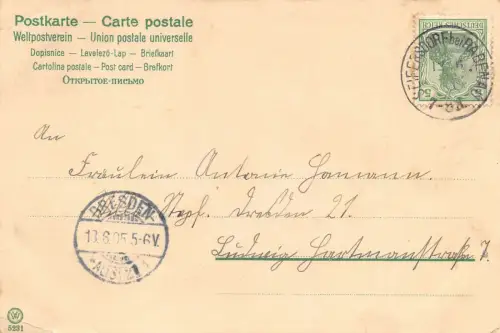 Postkarte — Carte postale
Weltpostverein — Union postale universelle
Dopisnice — Levelező-Lap — Briefkaart
Cartolina postale — Post card — Brefkort
Открытое-письмо
DEUTSCHES REICH
5
An
Fräulein Antonie Hamann
Dresden 21.
Ludwig Hartmannstraße 7.
DRESDEN-
10.8.05.5-6V.
5231